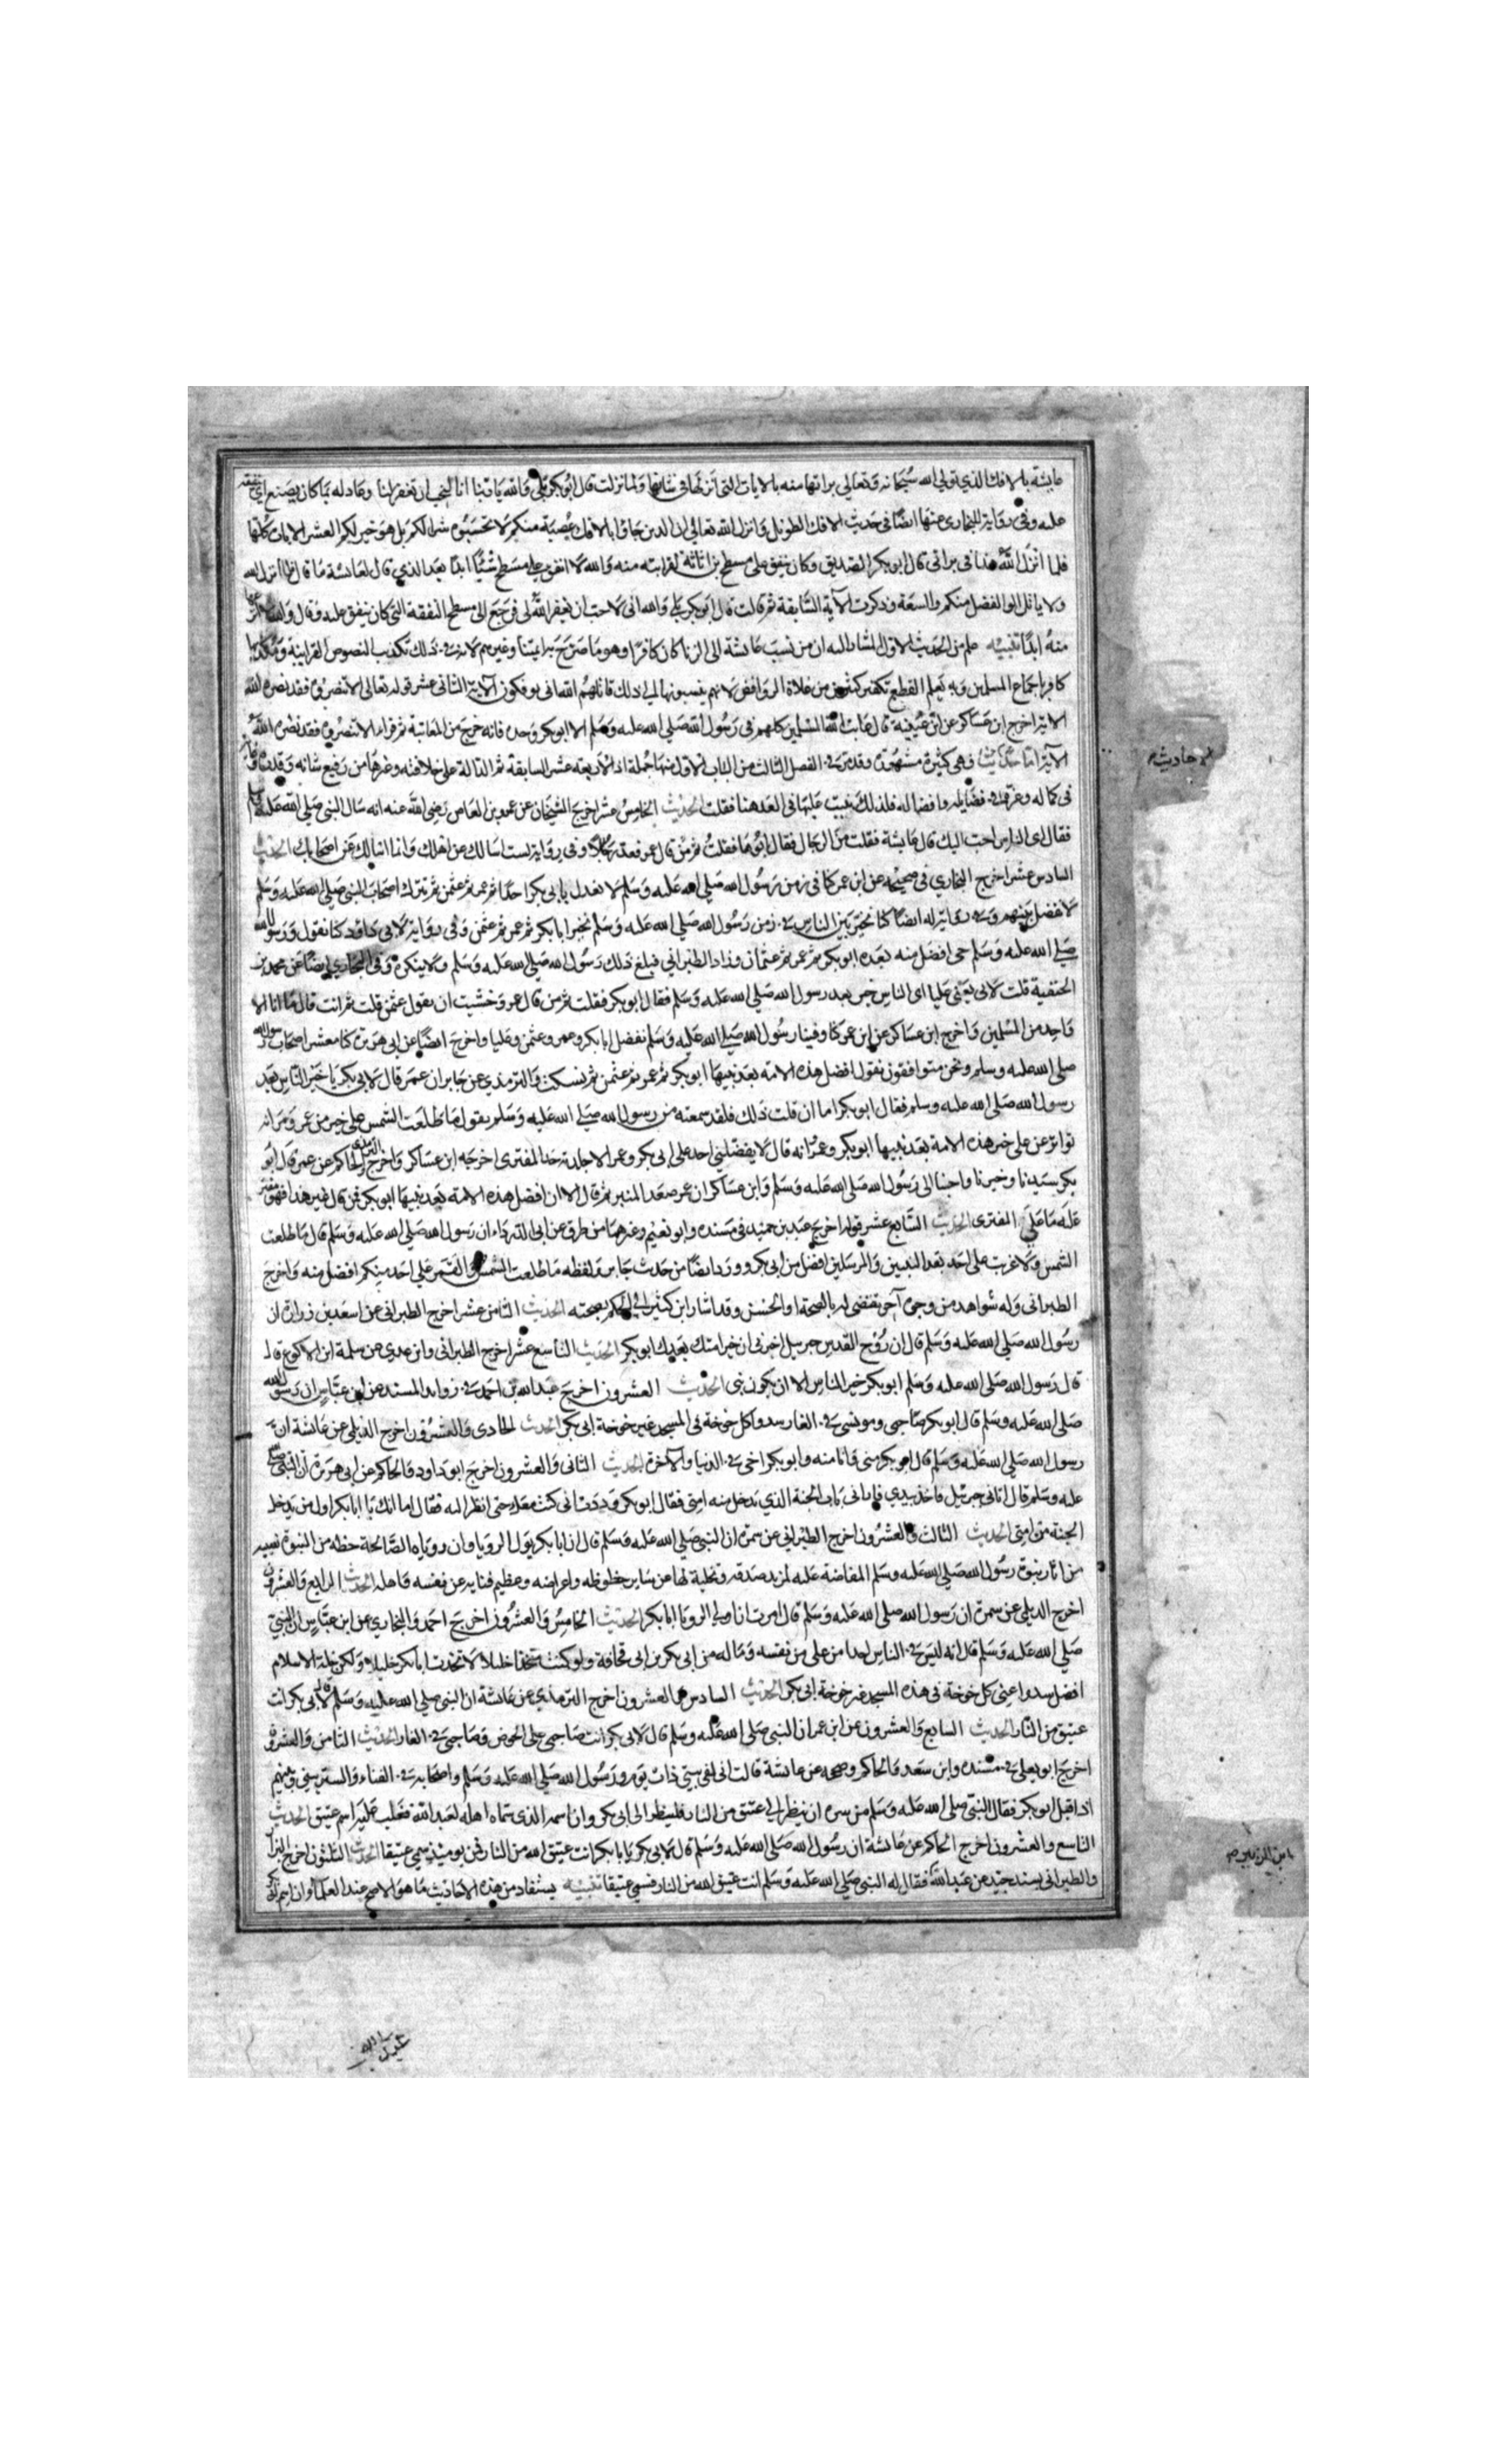 عايشة بالافك الذي تولي الله سُبحانه وَتعالي براتها منه بالايات التي انزلها في شانها ولما نزلت قال ابُو بكر بَلي وَالله يَا ربنا انا لنحب ان تغفر لنا وعَاد له بما كان يصنع اي ينفقه
عليه وفي روَاية للبخاري عنها ايضًا في حَديث الافك الطويل وَانزل الله تعالي ان الدين جَاوا بالافك عُصبَة منكم لَا تحسَبُوه شرا لكم بَل هوَ خير لكم العشر الايات كلها
فلما انزَل اللهُ هذا في براتي قال ابو بكر الصّديق وكان ينفق على مسطح بن اثاثه لقرابته منه وَالله لَا انفق علي مسَطح شيًا ابدًا بعد الذي قال لعَائشة مَا قال فانزل الله
ولا ياتل اولوا الفضل منكم والسعَة وذكرت الآية السَّابقة ثم قالت قال ابَو بكر بلي وَالله اني لَاحب ان يغفر اللهُ لي فرجَعَ الي مسطح النفقة التي كان ينفق عليه وَقال وَالله لا انزعها
منهُ ابدًا تنبيه علم من الحَديث الاول المشار اليه ان من نسبَ عَائشة الي الزنا كان كافرًا وهو مَا صَرّحَ به ايمّتنا وغيرهم لان في ذلك تكذيب النصوص القرانية وَمكذبها
كافر باجمَاع المسلمين وَبه يَعلم القطع بتكفير كثيرين من غلاة الروَافض لانهم ينسبونها الي ذلك قاتلهُم الله اني يوفكون الآية الثاني عشر قوله تعالي الا تنصرُوه فقد نصره اللهُ
الاية اخرج ابن عَساكر عن ابن عُيينة قال عَاتب الله المسلمين كلهم في رَسُول الله صَلي الله عليه وَسَلم الا ابو بكر وَحده فانه خرجَ من المعَاتبَة ثم قراء الا تنصرُوه فقد نصرَه اللهُ
الآية امّا فهي كثيرة مشهُورة وقد مَرّ في الفصل الثالث من البَاب الاول منها جُملة اذ الاَربعة عشر السابقة ثم الدالة على خلافته وغيرهَا من رَفيع شانه وَقدره
لاحاديث م
في كماله وغرّته في فضَايله وافضاله فلذلكَ بنيت عَليهَا في العَد هنا فقلت الحَديث الخامِسُ عشرَ اخرج الشيخان عن عمرو بن العَاص رَضي الله عنه انه سَال النبي صَلي الله عَليه وسلم
فقال اي الناس احبّ اليك قال عَايشة فقلت منَ الرجَال فقال ابُوهَا فقلتُ ثم مَنْ قال عمر فعدّ رجَالا وفي روَاية لست اسَالك عن اهلك وَانما اسَالك عَن اصحَابك الحَديث
السادس عشر اخرج البخاري في صَحيحه عن ابن عمر كنا في زمن رَسُول الله صَلي الله عَليه وَسَلم لا نعدل بابي بَكر احَدًا ثم عمر ثم عثمن ثم نترك اصحَابَ النبي صَلي الله عَليه وَسَلم
لَا نفضل بَينهم وفي روَاية له ايضًا كنا نخيّر بَين الناس في زمن رَسُول الله صَلي الله عليه وَسَلم نخير ابا بكر ثم عمر ثم عثمن وَفي روَاية لَابي دَاوُد كنا نقول وَرسُول الله
صَلي الله عليه وَسَلم حي افضَل منه بعَده ابو بكر ثم عمر ثم عثمان وزاد الطبراني فيبلغ ذلك رَسُول الله صَلي الله عليه وَسَلم ولا ينكره وَفي البخاري ايضًا عَن محمد بن
الحنفية قلت لابي يَعني عَليا اي الناس خير بعد رسول الله صَلي الله عَليه وَسَلم فقال ابو بكر فقلت ثم من قال عمر وَخشيت ان يقول عثمن قلت ثم انت قال مَا انا الا
وَاحد من المسُلمين وَاخرج ابن عسَاكر عن ابن عمر كنا وفينا رسُول الله صَلي الله عَليه وَسَلم نفضل ابا بكر وعمر وعثمن وعَليا واخرج ايضًا عن ابي هريرة كنا معشر اصحَاب رسول الله
صلي الله عليه وسلم ونحن متوافقون نقول افضل هذه الامه بَعد نبيها ابو بكر ثم عمر ثم عثمن ثم نسكت وَالترمذي عن جَابر ان عمَر قال لابي بكر يَا خيرَ النَّاس بعد
رسول الله صَلي الله عليه وسلم فقال ابو بكر اما ان قلت ذَلك فلقد سمعته من رسول الله صَلي الله عَليه وَسَلم يقول مَا طلعَت الشمس علي خير من عمر وَمَر انه
تواتر عن علي خير هذه الامة بعَد نبيها ابو بكر وعمر وانه قال لَا يفضّلني احد علي ابي بكر وعمر الا جلدته حَد المفتري اخرجَه ابن عسَاكر وَاخرج الترمذي والحاكم عن عمر قال ابُو
بكر سَيدنا وخيرنا واحبنا الي رَسُول الله صَلي الله عَليه وَسَلم وَابن عسَاكر ان عمر صَعد المنبر ثم قال الا ان افضل هذه الامة بَعد نبيهَا ابو بكر فمن قال غير هذا فهوَ مفتر
عَليه مَا عَلي المفتري الحَديث السَّابع عشر قوله اخرجَ عبد بن حميد في مسنده وابو نعَيم وغيرهمَا من طرق عن ابي الدّرداء ان رَسول الله صَلي الله عليه وَسَلم قال مَا طلعت
الشمس وَلَا غربت على احَد بعد النبيين وَالمرسَلين افضل من ابي بكر وورد ايضًا من حَديث جَابر ولفظه مَا طلعت الشمسُ والقمَر علي احد منكم افضل منه وَاخرجَ
الطبراني وَله شواهد من وجوه آخر تقتضي له بالصحة او الحُسن وقد اشار ابن كثير الي الحكم بصحته الحَديث الثامن عشر اخرج الطبراني عن اسعَد بن زرارة ان
رسُول الله صَلي الله عليه وَسَلم قال ان رُوح القدس جبريل اخبرني ان خير امتك بَعدك ابو بكر الحَديث التاسع عَشر اخرج الطبراني وابن عدي عن سلمة ابن الاكوع قال
قال رَسول الله صَلي الله عليه وَسَلم ابو بكر خير الناس الا ان يكون نبي الحَديث العشرون اخرجَ عبد الله بن احمَد في زوايد المسند عن ابن عبّاس ان رَسول الله
صَلي الله عَليه وسَلم قال ابو بكر صَاحبي ومونسي في الغار سدوا كل خوخة في المسجد غير خوخة ابي بكر الحَديث الحَادي وَالعشرُون اخرج الديلمي عن عَائشة ان
رسول الله صَلي الله عليه وَسَلم قال ابو بكر مني وَانا منه وابو بكر اخي في الدنيا والآخرة الحَديث الثاني وَالعشرون اخرجَ ابو دَاود وَالحاكم عن ابي هرَيرة ان النبي صلي
عليه وسَلم قال اتاني جبرئيل فاخذ بيدي فاراني بَاب الجنة الذي تدخل منه امتي فقال ابو بكر وَددت اني كنت معَك حتي انظر اليه فقال اما انك يَا ابا بكر اول من يدخل
الجنة من امتي الحَديث الثالث والعشرُون اخرج الطبراني عن سمرة ان النبي صَلي الله عَليه وَسَلم قال ان ابا بكر يَوّل الرويا وان روياه الصَّالحة حظه من النبوة
من اثار نبوة رسُول الله صَلي الله عَليه وسَلم المفاضة عَليه لمزيد صَدقه وتخلية لها عن سَاير حظوظه واعراضه وعظيم فنايه عن نفسه وَاهله الحَديث الرابع وَالعشرون
اخرج الديلمي عن سمرة ان رَسول الله صلي الله عليه وَسَلم قال امرت ان اولي الرويا ابا بكر الحَديث الخامِسُ وَالعشرُون اخرجَ احمَد وَالبخاري عن ابن عبّاس ان النبي
صَلي الله عَليه وَسَلم قال انه ليسَ في الناس احد امن علي من نفسه وَمَاله من ابي بكر بن ابي قحافة ولو كنت متخذا خليلا لاتخذت ابا بكر خليلا وَلكن خلة الاسلام
افضل سدوا عني كل خوخة في هذه المسجد غير خوخة ابي بكر الحَديث السادس والعشرون اخرج الترمذي عن عَائشة ان النبي صَلي الله عليه وَسَلم قال لابي بكر انت
عتيق من النَّار الحَديث السابع وَالعشرون عن ابن عمر ان النبي صَلي الله عَليه وَسَلم قال لابي بكر انت صَاحبي علي الحوض وَصَاحبي في الغار الحَديث الثامن وَالعشرون
اخرجَ ابو يعلي في مسنده وابن سَعد وَالحاكم وصححه عن عايشة قالت اني لفي بيتي ذات يَوم وَرسُول الله صَلي الله عليه وَسَلم واصحَابه في الفناء وَالستر بيني وبينهم
اذ اقبل ابو بكر فقال النبي صلي الله عليه وَسَلم من سره ان ينظر الي عتيق من النار فلينظر الي ابي بكر وان اسمه الذي سماه اهله لعَبد الله فغلب عَليه اسم عتيق الحَديث
التاسع والعشرون اخرج الحَاكم عن عَائشة ان رسُول الله صَلي الله عَليه وَسَلم قال لابي بكر يَا ابا بكر انت عتيق الله من النار فمن يوميئذ سمي عتيقا الحَديث الثلثون اخرج البزار
والطبراني بسند جيّد عن عَبد الله فقال له النبي صَلي الله عَليه وَسَلم انت عتيق الله من النار فسمي عتيقا تنبيه يستفاد من هذه الاحَاديث مَا هوَ الاصح عند العلمَاء ان اسم ابي بكر
ابن الزبير م